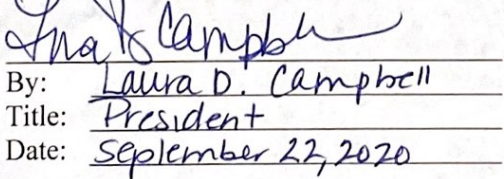 Campbell
By: Laura D. Campbell
Title: President
Date: September 22, 2020